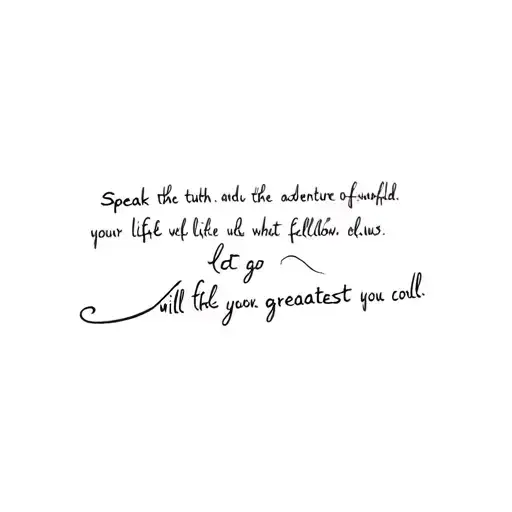 Speak the tuth. and the adenture of
your life vef like ule what fellow. claus.
let go
will fhe your greatest you coll.